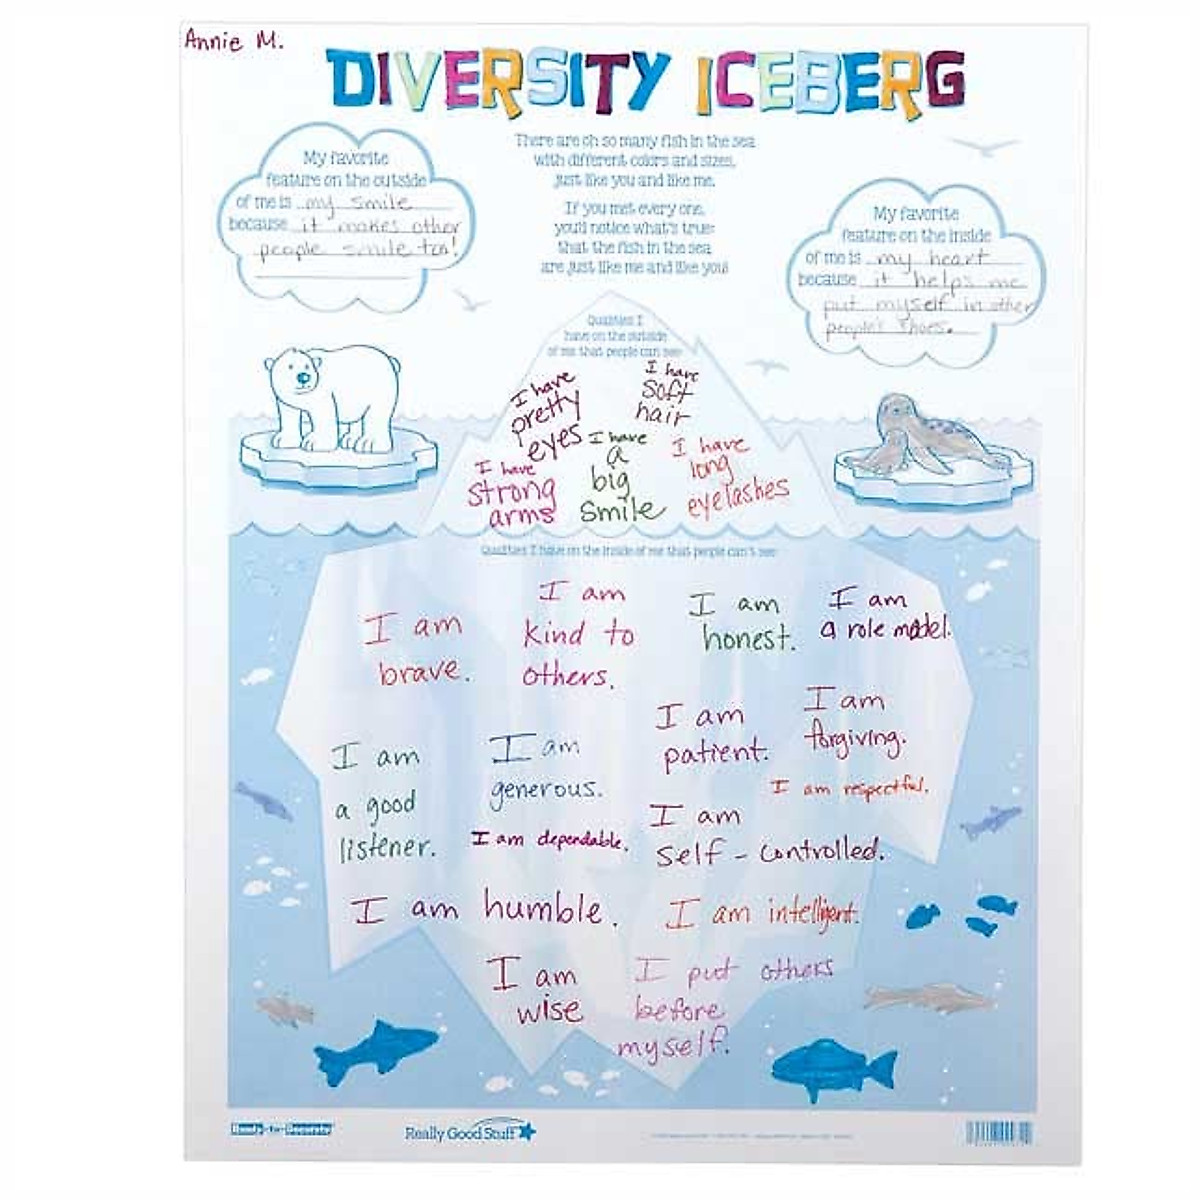 Annie M.
DIVERSITY ICEBERG
There are oh so many fish in the sea
with different colors and sizes,
just like you and like me.
If you met every one,
you'll notice what's true:
that the fish in the sea
are just like me and like you!
My favorite
feature on the outside
of me is my smile
because it makes other
people smile too!
My favorite
feature on the inside
of me is my heart
because it helps me
put myself in other
people's shoes.
Qualities I
have on the outside
of me that people can see
I have
pretty
eyes
I have
soft
hair
I have
strong
arms
I have
a
big
smile
I have
long
eyelashes
Qualities I have on the inside of me that people can't see
I am
brave.
I am
kind to
others.
I am
honest.
I am
a role model.
I am
a good
listener.
I am
generous.
I am
patient.
I am
forgiving.
I am respectful.
I am dependable.
I am
self-controlled.
I am humble.
I am intelligent.
I am
wise
I put others
before
myself.
Ready-to-Decorate
Really Good Stuff